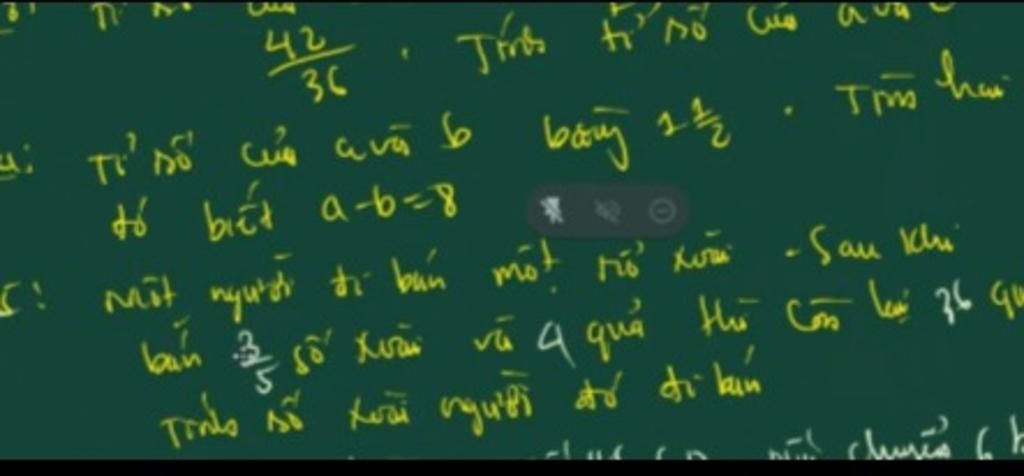 42/36 . Tính tỉ số của a và
Tỉ số của a và b bằng 1 1/2 . Tìm hai
đó biết a-b=8
Một người đi bán một rổ xoài . Sau khi
bán 3/5 số xoài và 4 quả thì còn lại 36
Tính số xoài người đó đi bán
chuyển 6